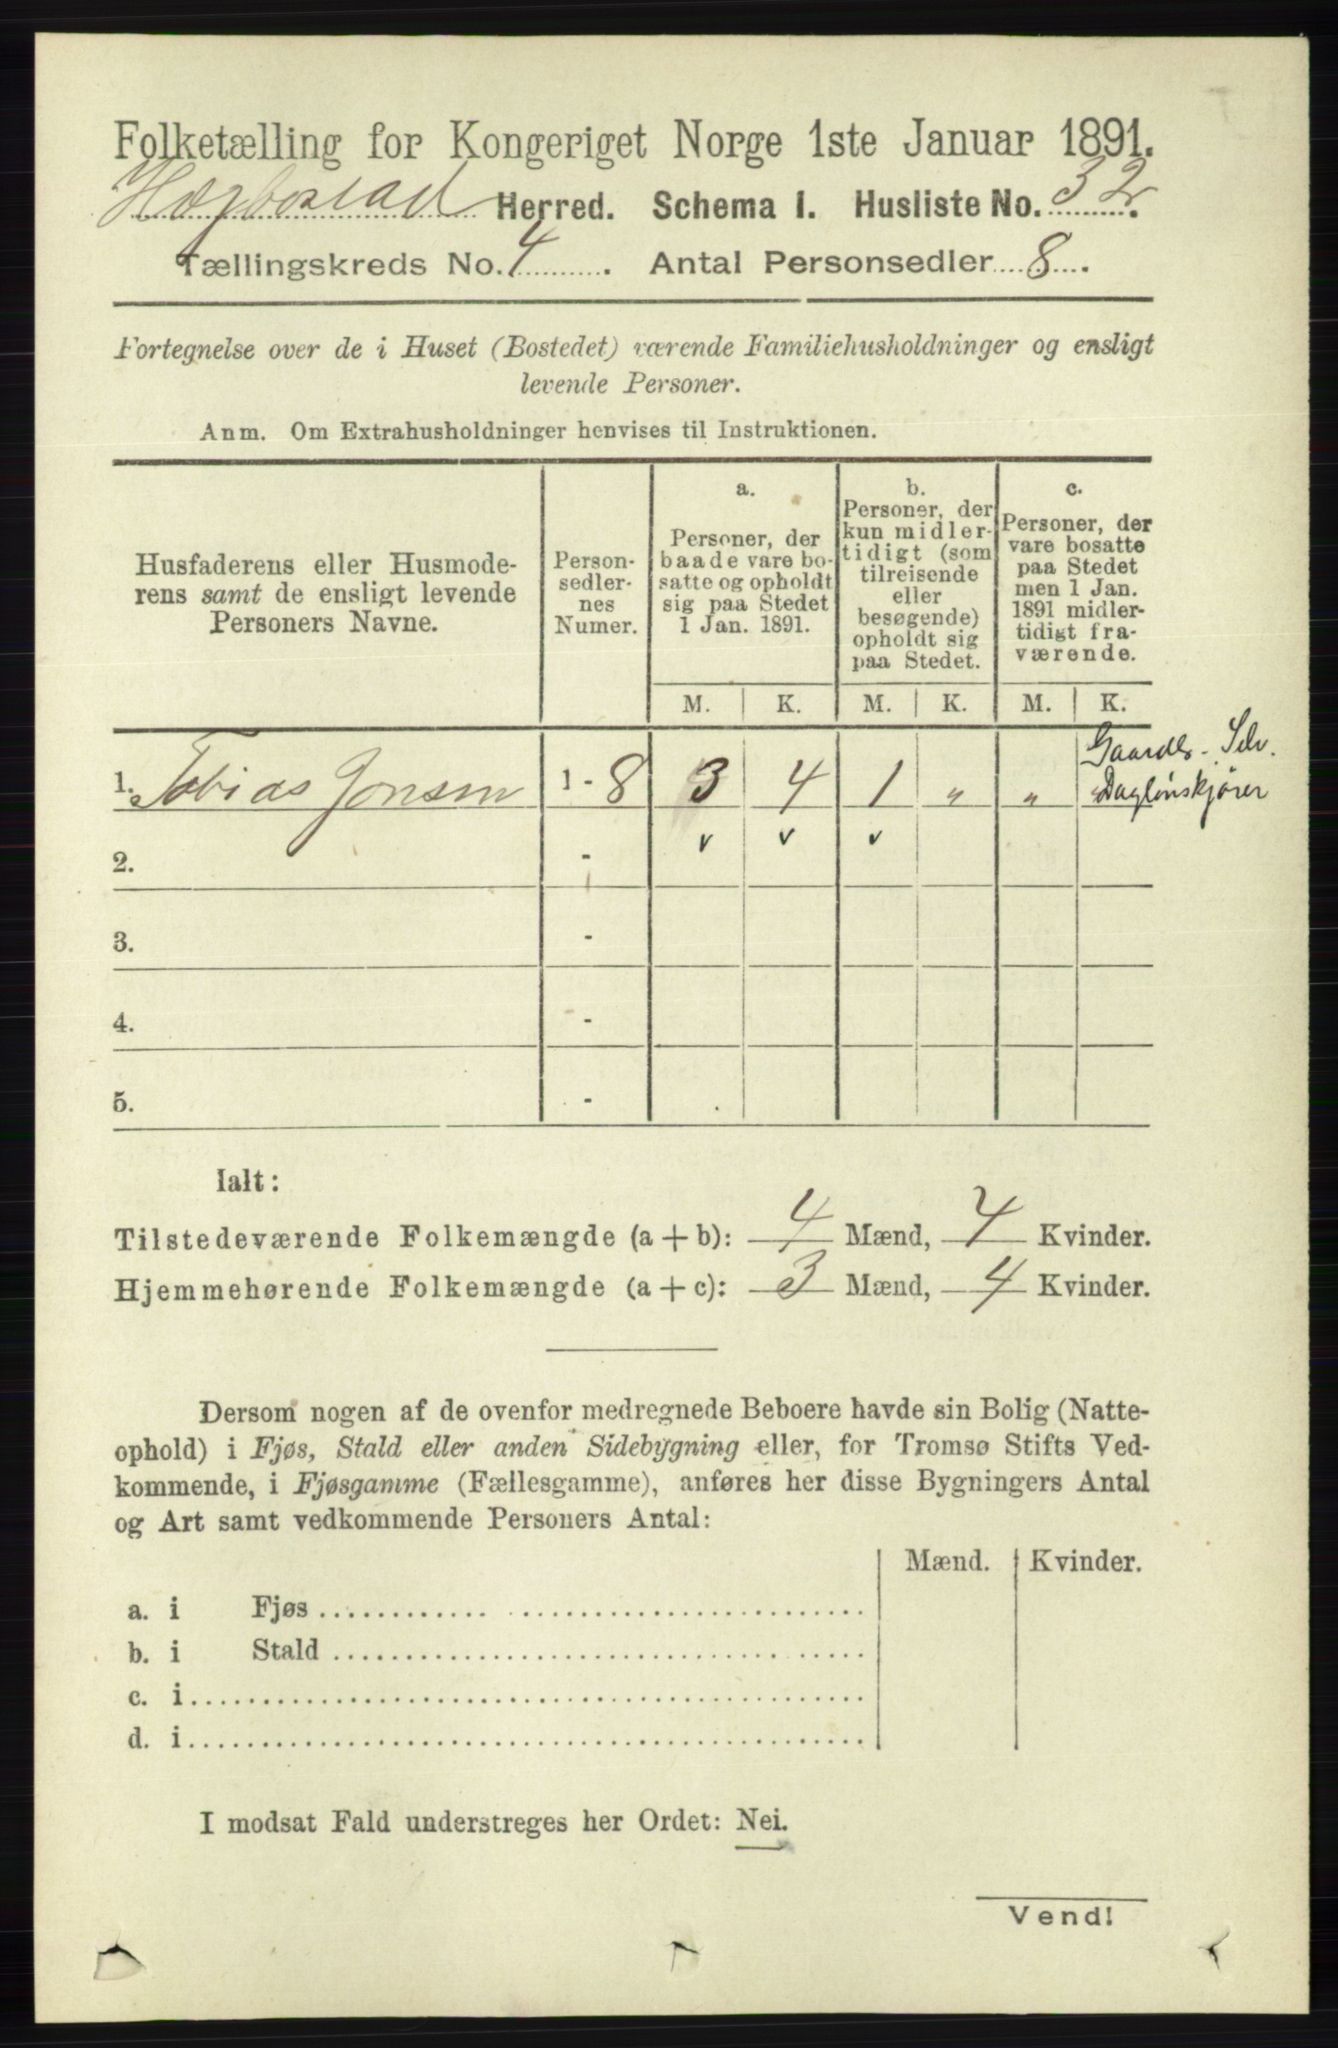 Folketælling for Kongeriget Norge 1ste Januar 1891.
Hægbostad Herred. Schema I. Husliste No. 32.
Tællingskreds No. 4. Antal Personsedler 8.
Fortegnelse over de i Huset (Bostedet) værende Familiehusholdninger og ensligt
levende Personer.
Anm. Om Extrahusholdninger henvises til Instruktionen.
Husfaderens eller Husmode-
rens samt de ensligt levende
Personers Navne.
Person-
sedler-
nes
Numer.
a.
Personer, der
baade vare bo-
satte og opholdt
sig paa Stedet
1 Jan. 1891.
b.
Personer, der
kun midler-
tidigt (som
tilreisende
eller
besøgende)
opholdt sig
paa Stedet.
c.
Personer, der
vare bosatte
paa Stedet
men 1 Jan.
1891 midler-
tidigt fra-
værende.
M. K. M. K. M. K.
Gaardb - Selv.
1. Tobias Jonsen 1 - 8 3 4 1 „ „ „ Daglönskjörer
2. - v v v
3. -
4. -
5. -
Ialt:
Tilstedeværende Folkemængde (a + b): 4 Mænd, 4 Kvinder.
Hjemmehørende Folkemængde (a + c): 3 Mænd, 4 Kvinder.
Dersom nogen af de ovenfor medregnede Beboere havde sin Bolig (Natte-
ophold) i Fjøs, Stald eller anden Sidebygning eller, for Tromsø Stifts Ved-
kommende, i Fjøsgamme (Fællesgamme), anføres her disse Bygningers Antal
og Art samt vedkommende Personers Antal:
Mænd. Kvinder.
a. i Fjøs
b. i Stald
c. i
d. i
I modsat Fald understreges her Ordet: Nei.
Vend!